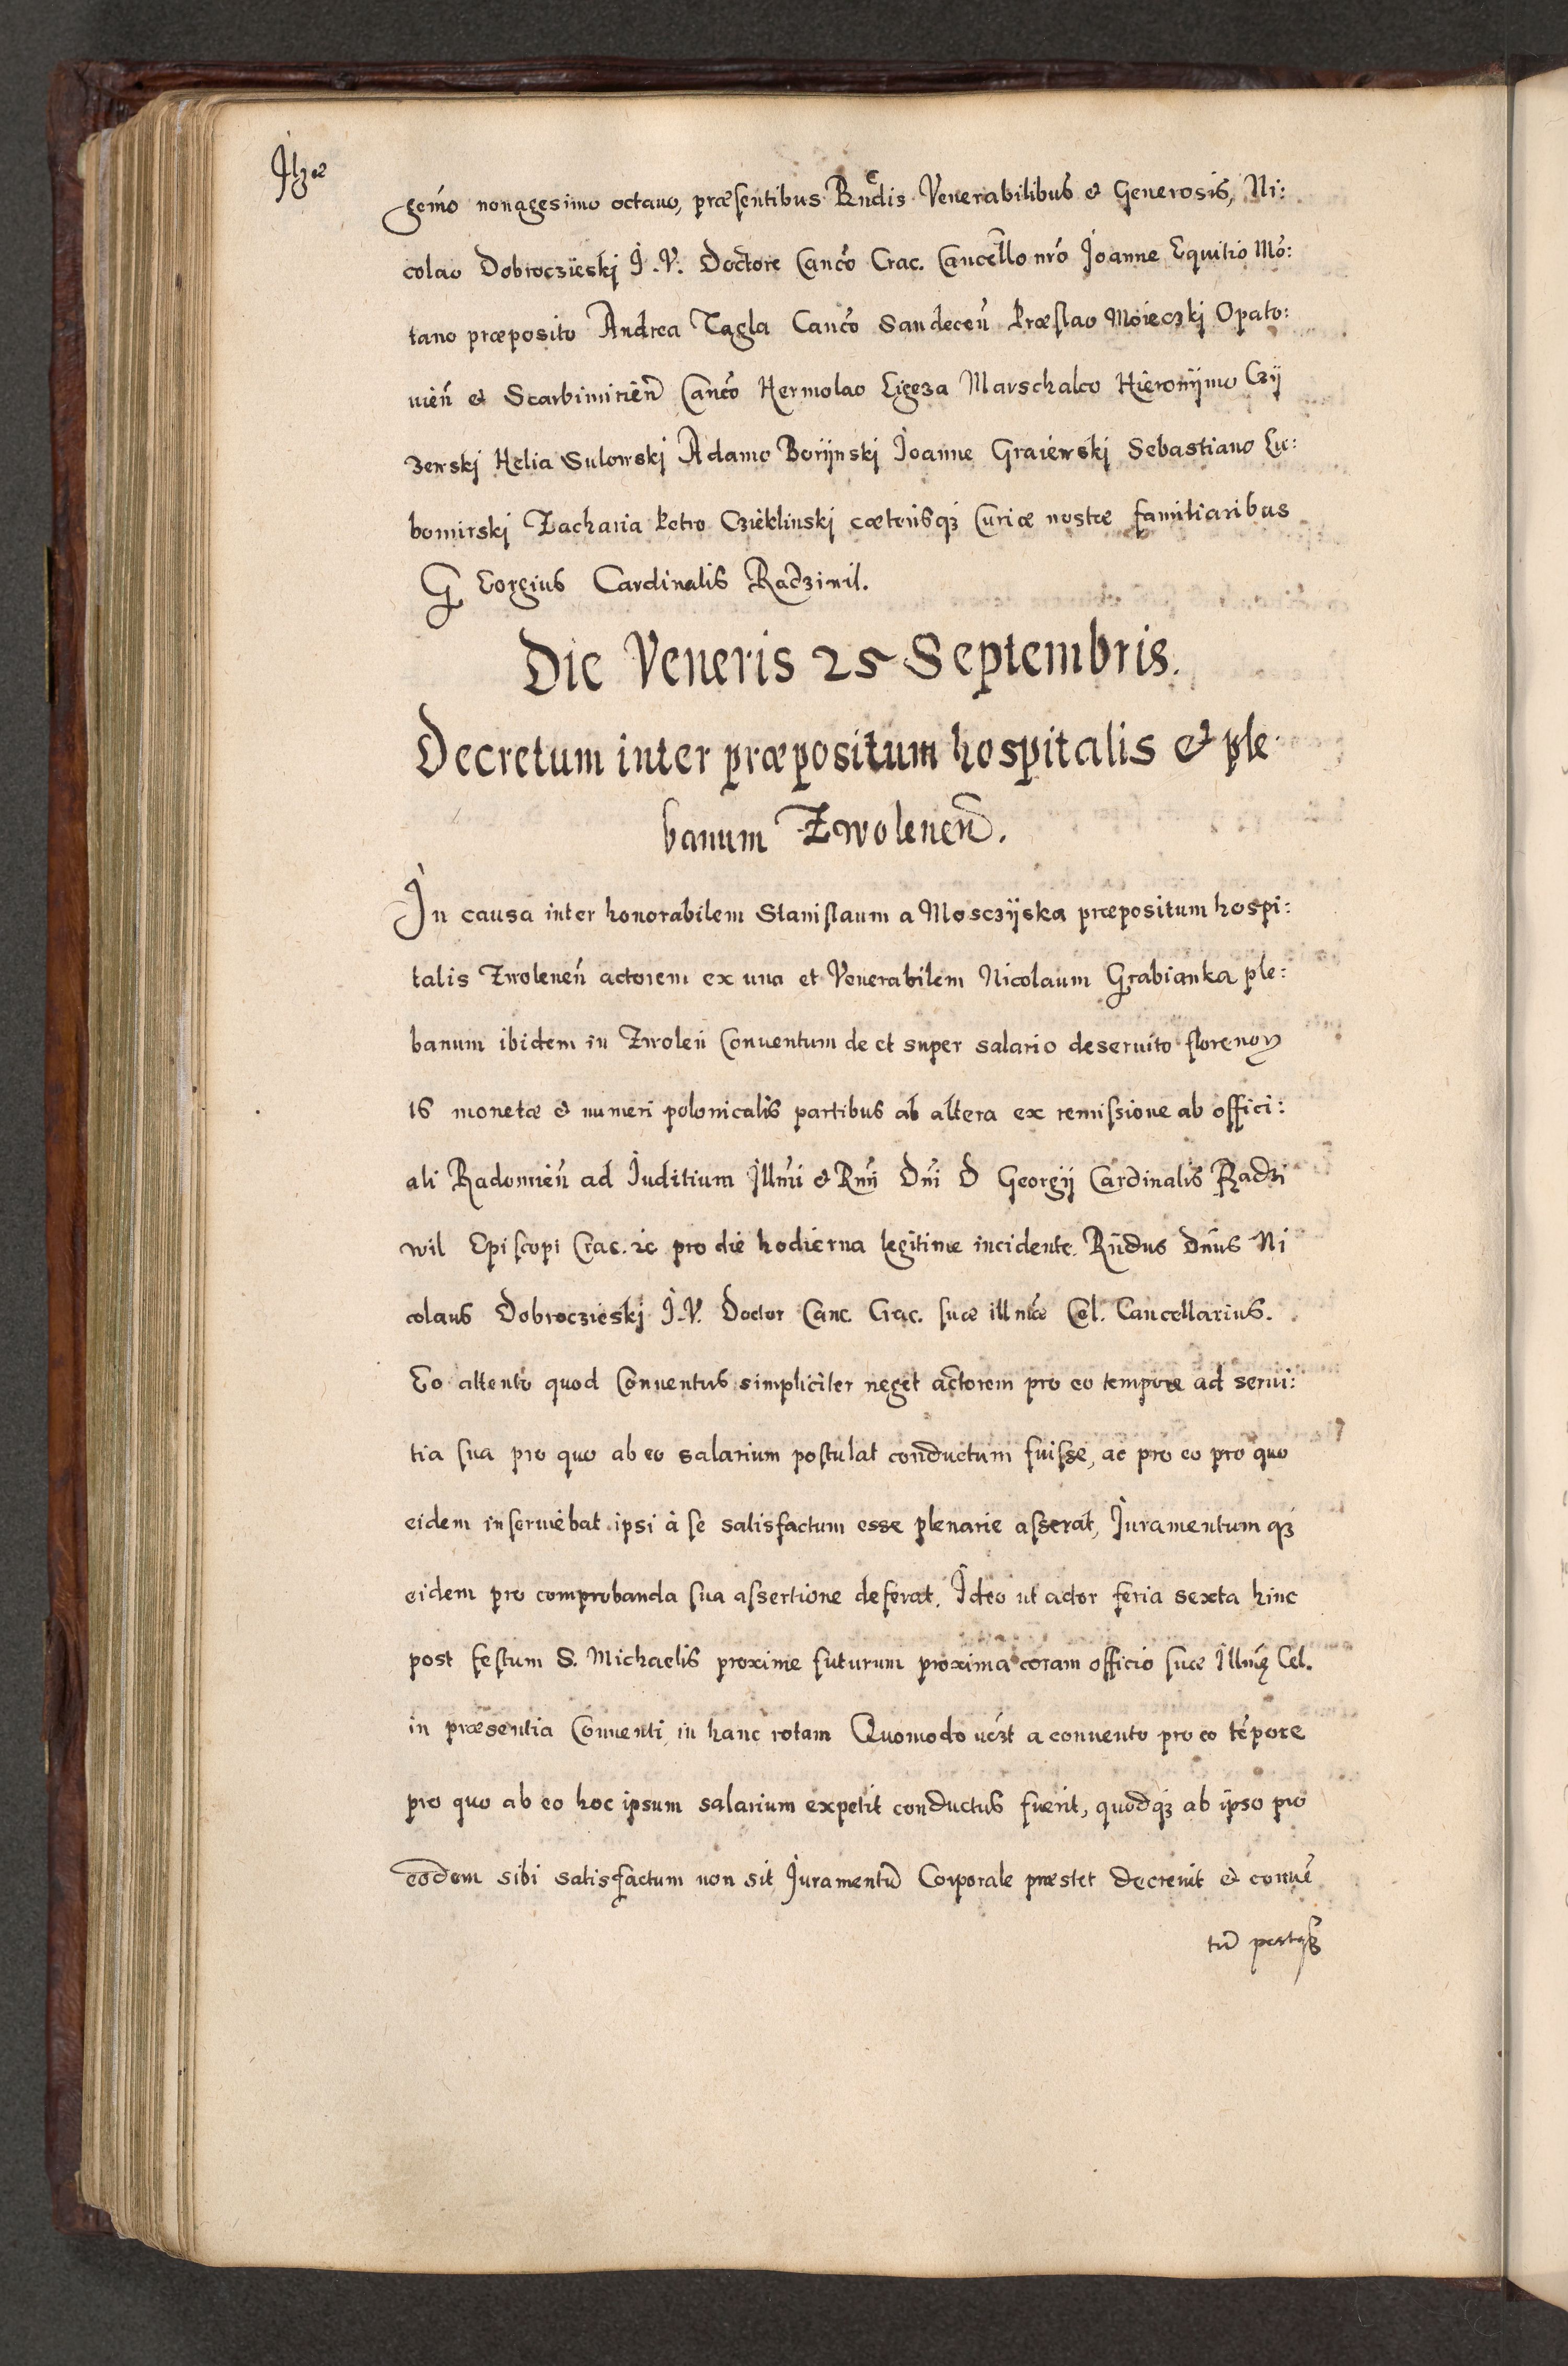 Jlzæ
gemo nonagesimo octauo, præsentibus Rndis Venerabilibus et Generosis, Ni:
colao Dobroczieskj J.V. Doctore Canco Crac. Cancello nro Joanne Equitio Mo:
tano præposito Andrea Tagla Canco Sandecen Præslao Moieczkj Opato:
uien et Scarbimirien Canco Hermolao Ligeza Marschalco Hieronÿmo Czÿ
zewskj Helia Sulowskj Adamo Borÿnski Joanne Graiewskj Sebastiano Lu:
bomirskj Zacharia Petro Czieklinskj cæterisqz Curiæ nostræ familiaribus
GEorgius Cardinalis Radziwil.
Die Veneris 25 Septembris.
Decretum inter præpositum hospitalis et ple:
banum Zwolenen.
Jn causa inter honorabilem Stanislaum a Mosczÿska præpositum hospi:
talis Zwolenen actorem ex una et Venerabilem Nicolaum Grabianka ple:
banum ibidem in Zwolen Conuentum de et super salario deseruito florenoꝝ
16 monetæ et numeri polonicalis partibus ab altera ex remissione ab offici:
ali Radomien ad Juditium Jllmi et Rmi Dni D Georgÿ Cardinalis Radzi
wil Episcopi Crac. zc pro die hodierna legitime incidente. Rndus Dnus Ni
colaus Dobroczieskj J.V. Doctor Canc. Crac. suæ illmæ Cel. Cancellarius.
Eo attento quod Conuentus simpliciter neget actorem pro eo tempore ad serui:
tia sua pro quo ab eo salarium postulat conductum fuisse, ac pro eo pro quo
eidem inseruiebat ipsi à se satisfactum esse plenarie asserat, Juramentum qz
eidem pro comprobanda sua assertione deferat. Jdeo ut actor feria sexta hinc
post festum S. Michaelis proxime futurum proxima coram officio suæ Jllmę Cel.
in præsentia Conuenti, in hanc rotam Quomodo uczt a conuento pro eo tēpore
pro quo ab eo hoc ipsum salarium expetit conductus fuerit, quodqz ab ipso pro
eodem sibi satisfactum non sit Juramentū Corporale præstet decreuit et conuē
tū postqz